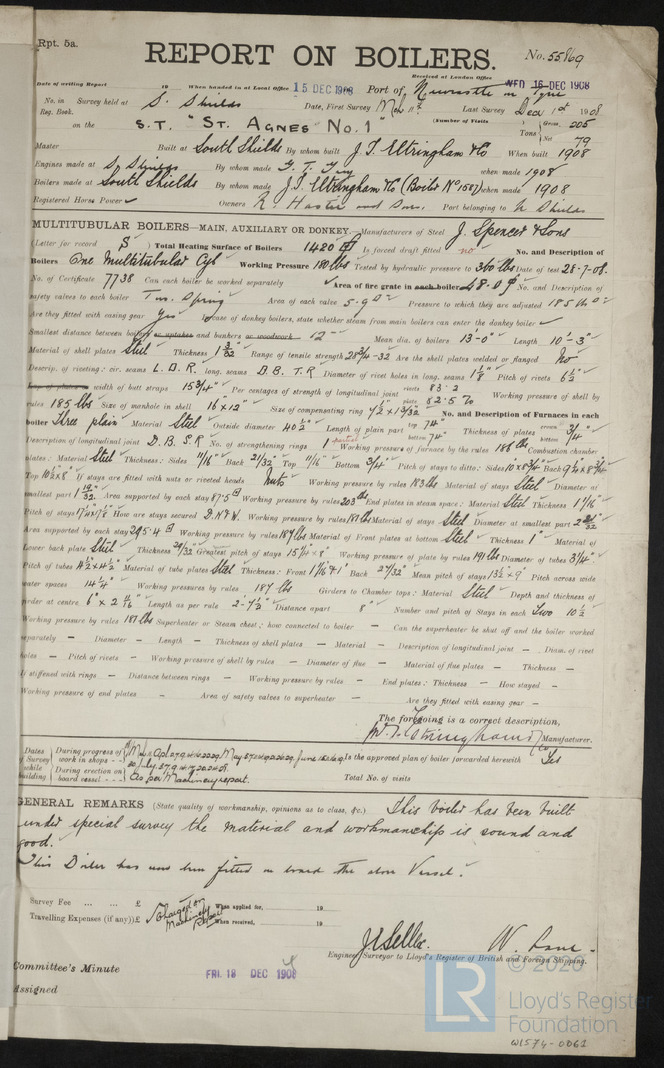 Rpt. 5a.
REPORT ON BOILERS.
No. 55869
Received at London Office
Date of writing Report 19 When handed in at Local Office 15 DEC 1908 Port of Newcastle on Tyne WED. 16 DEC 1908
No. in Survey held at S. Shields Date, First Survey Last Survey Dec 1st 1908
Reg. Book.
(Number of Visits
on the S.T. "ST. AGNES No. 1" Tons Gross 205
Net 79
Master Built at South Shields By whom made J. T. Eltringham & Co When built 1908
Engines made at S. Shields By whom made G. T. Grey when made 1908
Boilers made at South Shields By whom made J. T. Eltringham & Co (Boiler No 1587) when made 1908
Registered Horse Power Owners R. Hastie and Sons. Port belonging to N Shields
MULTITUBULAR BOILERS—MAIN, AUXILIARY OR DONKEY.—Manufacturers of Steel J. Spencer & Sons
(Letter for record S) Total Heating Surface of Boilers 1420 Is forced draft fitted no No. and Description of
Boilers One Multitubular Cyl Working Pressure 180 lbs Tested by hydraulic pressure to 360 lbs Date of test 28-7-08.
No. of Certificate 7738 Can each boiler be worked separately Area of fire grate in each boiler 48.0 No. and Description of
safety valves to each boiler Two Spring Area of each valve 5.9 Pressure to which they are adjusted 185
Are they fitted with easing gear Yes In case of donkey boilers, state whether steam from main boilers can enter the donkey boiler
Smallest distance between boilers or uptakes and bunkers or woodwork 12" Mean dia. of boilers 13'-0" Length 10'-3"
Material of shell plates Steel Thickness 1 3/32 Range of tensile strength 28 3/4-32 Are the shell plates welded or flanged No
Descrip. of riveting: cir. seams L.D.R. long. seams D.B.T.R Diameter of rivet holes in long. seams 1 1/8 Pitch of rivets
width of butt straps 15 3/4" Per centages of strength of longitudinal joint rivets 83.2
plate 82.5 % Working pressure of shell by
rules 185 lbs Size of manhole in shell 16" x 12" Size of compensating ring No. and Description of Furnaces in each
boiler Three plain Material Steel Outside diameter 40 1/2" Length of plain part top 74"
bottom 74" Thickness of plates crown
bottom 3/4"
Description of longitudinal joint D.B.S.R No. of strengthening rings Working pressure of furnace by the rules Combustion chamber
plates: Material Steel Thickness: Sides 11/16" Back 21/32 Top 11/16" Bottom 3/4" Pitch of stays to ditto: Sides 10" x 8 3/4" Back
Top 10 1/2" x 8" If stays are fitted with nuts or riveted heads Nuts Working pressure by rules 183 lbs Material of stays Steel Diameter at
smallest part Area supported by each stay 87.5 Working pressure by rules 203 lbs End plates in steam space: Material Steel Thickness 1 1/16"
Pitch of stays How are stays secured D.N & W. Working pressure by rules Material of stays Steel Diameter at smallest part
Area supported by each stay 295.4 Working pressure by rules 187 lbs Material of Front plates at bottom Steel Thickness 1" Material of
Lower back plate Steel Thickness Greatest pitch of stays 15 1/4" x 8" Working pressure of plate by rules 191 lbs Diameter of tubes 3 1/4"
Pitch of tubes 4 1/2 x 4 1/2" Material of tube plates Steel Thickness: Front 1 1/16" & 1" Back 27/32" Mean pitch of stays 13 1/2" x 9" Pitch across wide
water spaces 14 1/4" Working pressures by rules 187 lbs Girders to Chamber tops: Material Steel Depth and thickness of
girder at centre Length as per rule 2'-7 1/2" Distance apart 8" Number and pitch of Stays in each Two 10 1/2
Working pressure by rules 187 lbs Superheater or Steam chest; how connected to boiler — Can the superheater be shut off and the boiler worked
separately — Diameter — Length — Thickness of shell plates — Material — Description of longitudinal joint — Diam. of rivet
holes — Pitch of rivets — Working pressure of shell by rules — Diameter of flue — Material of flue plates — Thickness —
If stiffened with rings — Distance between rings — Working pressure by rules — End plates: Thickness — How stayed —
Working pressure of end plates — Area of safety valves to superheater — Are they fitted with easing gear —
The foregoing is a correct description,
Manufacturer.
Dates of Survey while building
During progress of work in shops - -
During erection on board vessel - - - As per Machinery report.
Is the approved plan of boiler forwarded herewith Yes
Total No. of visits
GENERAL REMARKS (State quality of workmanship, opinions as to class, &c.) This boiler has been built
under special survey the material and workmanship is sound and
good.
This Boiler has now been fitted on board the above Vessel.
Survey Fee ... ... £ When applied for, 19
Travelling Expenses (if any) £ When received, 19
Charged on Machinery Report
W. Lane
Engineer Surveyor to Lloyd's Register of British and Foreign Shipping.
Committee's Minute FRI. 18 DEC 1908
Assigned
© 2020
LR Lloyd's Register
Foundation
W1574-0061